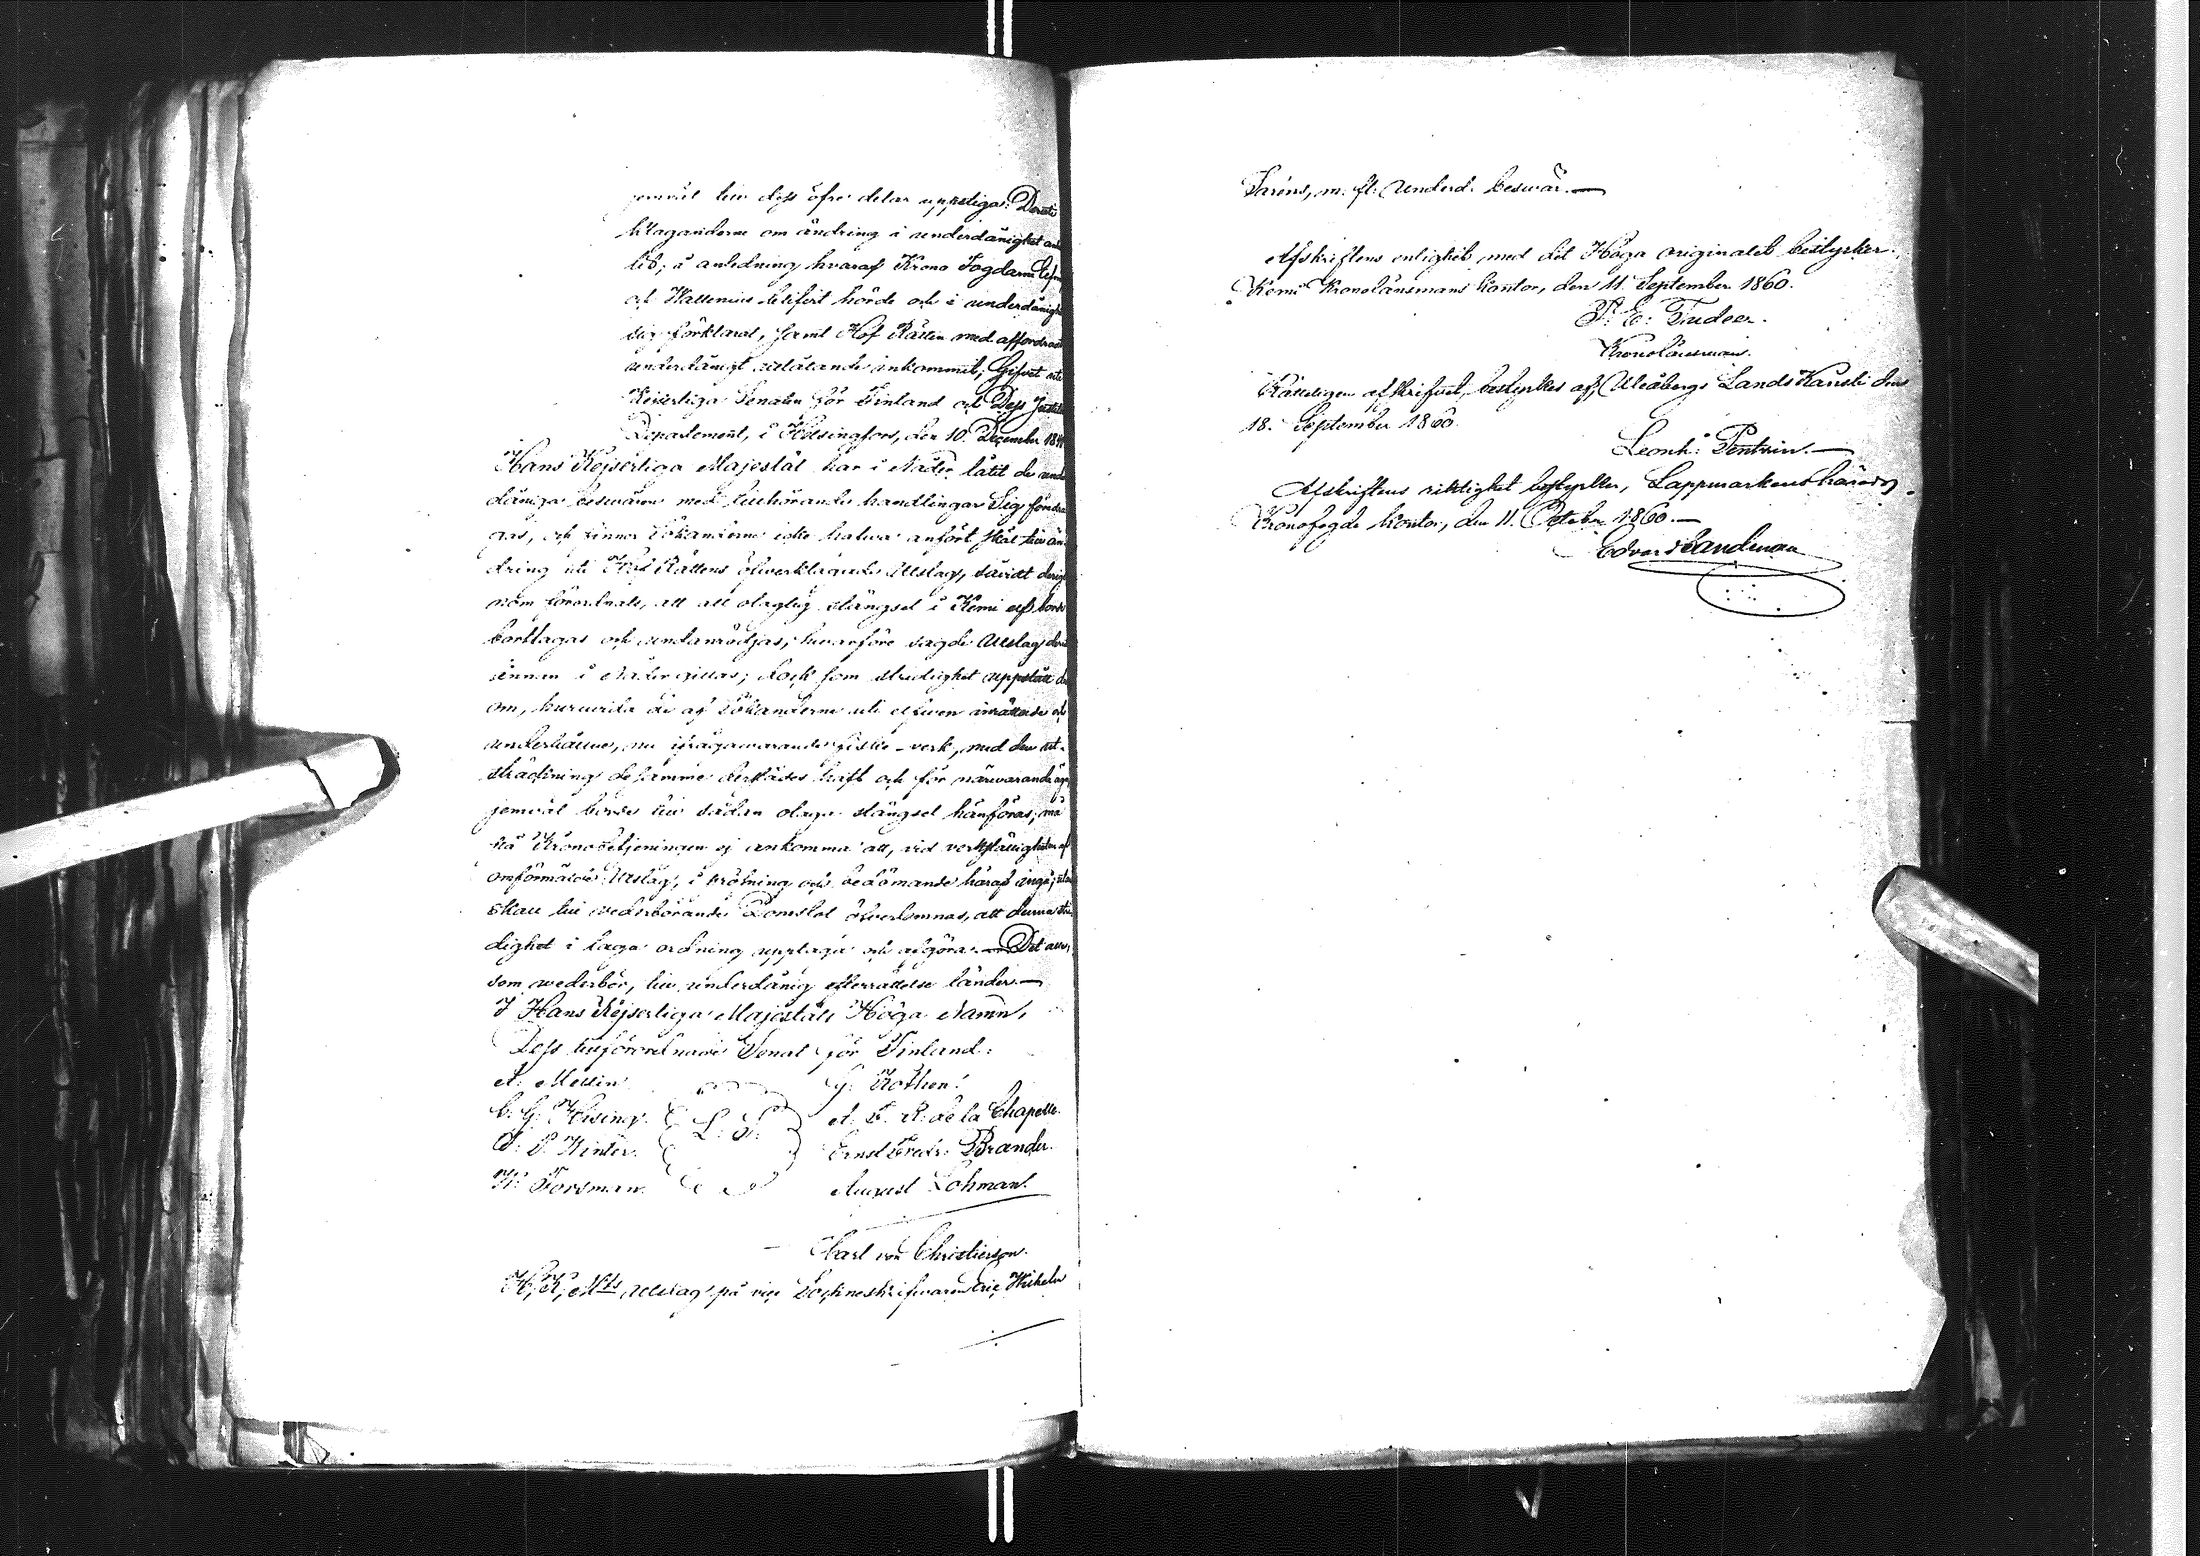 jemväl till dess öfre delar uppstiga: Deruti
klaganderne om ändring i underdånighet an
lid; i anledning hvaraf Krono Fogdarne
och Wallenius blifvit hörde och i underdånigh
sig förklarat, samt Hof Rätten med affordradt
underdånigt utlåtande inkommit; Gifvet uti
Kejserliga Senaten för Finland och Dess Justitie
Departement, i Helsingfors, den 10. December 18
Hans Kejserliga Majestät har i Nåder låtit de under
dåniga besvären med tillhörande handlingar Sig föredra
gas, och finner Sökanderne icke hafwa anfört skäl till än
dring uti Hof Rättens öfwerklagade Utslag, såvidt derige
nom förordnats, att all olaglig stängsel i Kemi elf borde
borttagas och undanrödjas; hwarföre sagde Utslag deri
innan i Nåder gillas; dock som stridighet uppstått der
om, huruvida de af Sökanderne uti elfwen inrättade och
underhållne, nu ifrågawarande fiske-verk, med den ut-
sträckning desamme derstädes haft och för närwarande äga,
jemväl borde till sådan olaga stängsel hänföras; må
på Kronobetjeningen ej ankomma att, vid verkställigheten af
omförmälde Utslag, i pröfning och bedömande häraf ingå; utan
skall till wederbörande Domstol öfwerlemnas, att denna stri
dighet i laga ordning upptaga och afgöra. — Det alle,
som wederbör, till underdånig efterrättelse länder. —
I Hans Kejserliga Majestäts Höga Namn,
Dess tillförordnade Senat för Finland:
A. Mellin. G. Rothen.
C. G. Hising. L. S. A. F. R. de la Chapelle.
O. P. Winter. Ernst Fredr: Brander.
K. Forsman. August Lohman.
Carl von Christierson.
H; K; Mts Utslag på vice Sockneskrifwaren Eric Wilhelm
Faréns, m. fl: Underd. beswär. —
Afskriftens enlighet med det Höga originalet bestyrker.
Kemi Kronolänsmans kontor, den 11. September 1860.
P. E. Tudeer.
Kronolänsman.
Rätteligen afskrifvet, bestyrkes af, Uleåborgs Lands Kansli den
18. September 1860.
Leonh: Pentzin. —
Afskriftens riktighet bestyrker, Lappmarkens härads
Kronofogde kontor, den 11. October 1860. —
Edvard Sandman